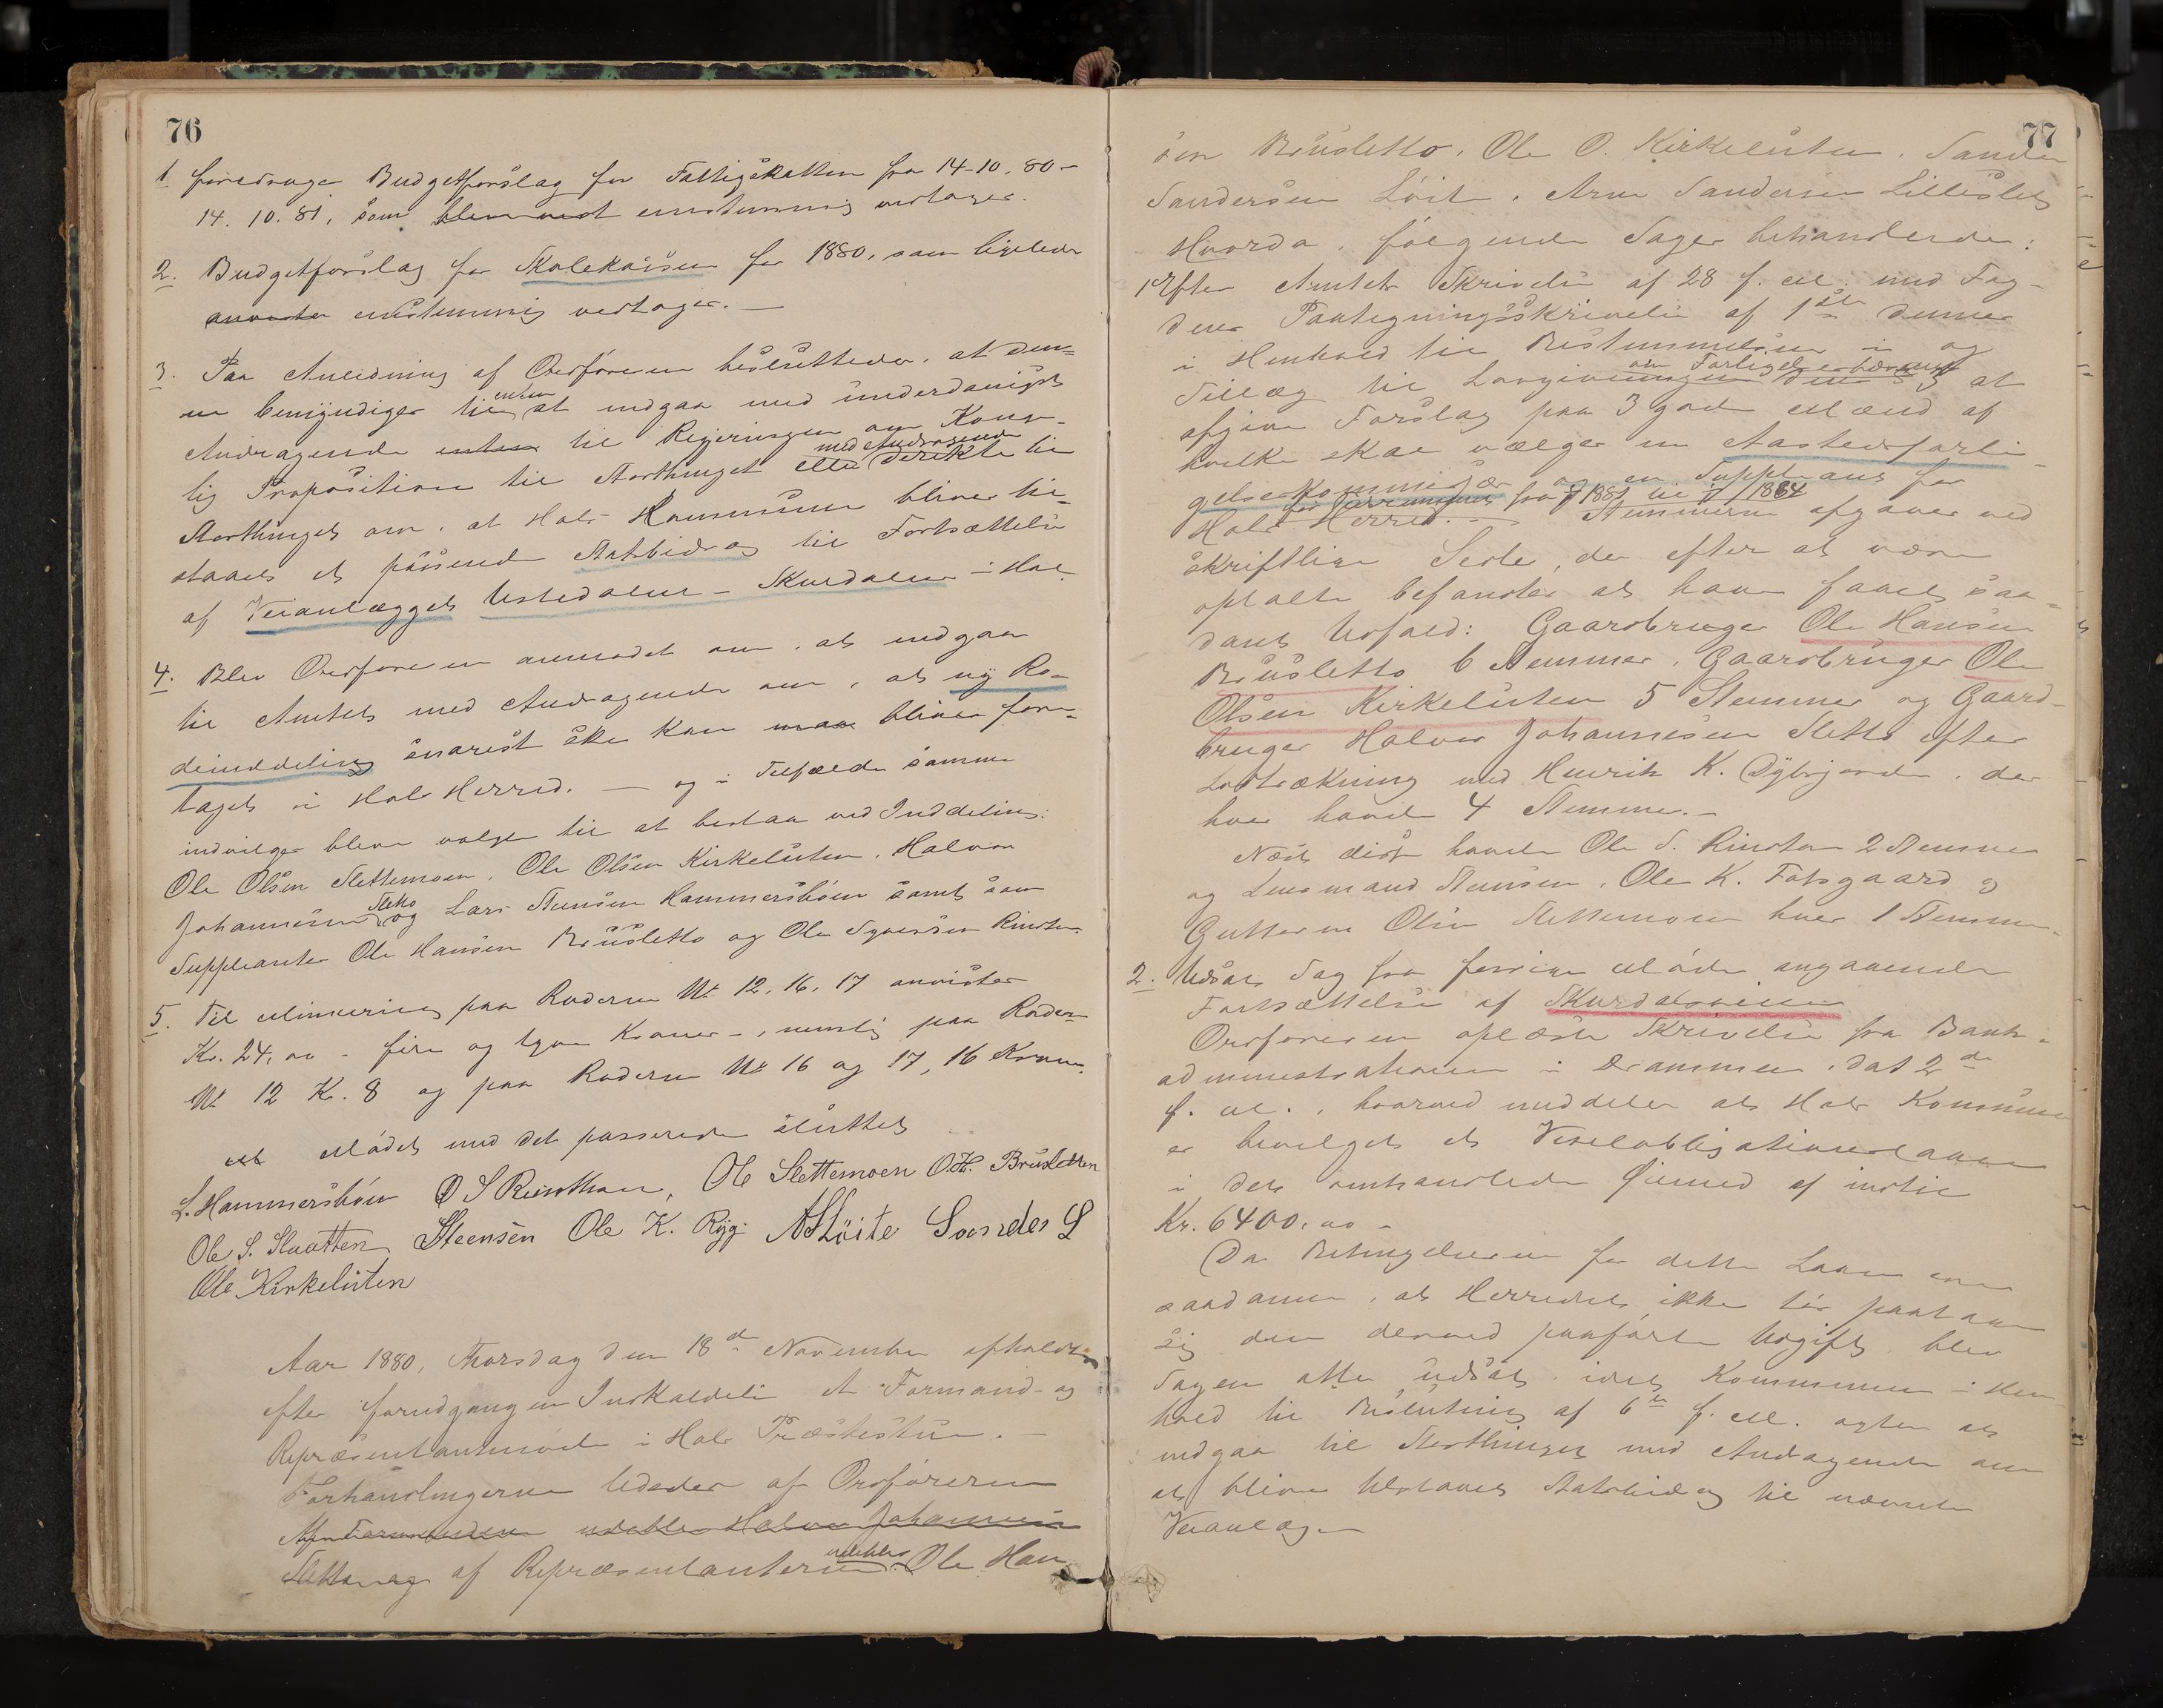 76
1 foredrages Budgetforslag for Fattigskatten fra 14-10. 80 -
14. 10. 81, som bleven enstemmig vedtaget.
2. Budgetforslag for Skolekassen for 1880, som ligeledes
anviste enstemmig vedtages. -
3. Paa Anledning af Ordføreren besluttedes, at den-
ne bemyndiges til enten at indgaa med underdanigst
Andragende enten til Regjeringen om Konge-
lig Proposition til Storthinget eller med Andragende direkte til
Storthinget om, at Hols Kommune bliver til-
staaet et passende Statsbidrag til Fortsættelse
af Veianlægget Ustedalen - Skurdalen i Hol.
4. Blev Ordføreren anmodet om, at indgaa
til Amtet med Andragende om, at ny Ro-
deinddeling snarest ske kan maa bliver fore-
taget i Hols Herred. - og i Tilfælde samme
indvilges bleve valgte til at bistaa ved Inddeling:
Ole Olsen Slettemoen, Ole Olsen Kirkeluten, Halvor
Johannesen Sletto og Lars Steensen Hammersbøen samt som
Suppleanter Ole Hansen Brusletto og Ole Syversen Rinsten
5. Til Minering paa Roderne No 12, 16, 17 anvistes
Kr. 24,00 - fire og tyve Kroner -, nemlig paa Roden
No 12 Kr. 8 og paa Roderne No 16 og 17, 16 Kroner.
Mødet med det passerede sluttet
L. Hammersbøen O S Rinsthen, Ole Slettemoen O.H. Brusletten
Ole S. Slaatten Steensen Ole K. Ryg. A S Löite Sander S
Ole Kirkeluten
Aar 1880, Thorsdag den 18de November afholdtes
efter forudgangen Indkaldelse et Formand- og
Repræsentantmøde i Hols Præstestue. -
Forhandlingerne lededes af Ordføreren
Af Formændene udeblev Halvor Johannesen
Sletto og af Repræsentanterne udeblev Ole Han
77
sen Brusletto, Ole O. Kirkeluten, Sander
Sandersen Löit, Arne Sandersen Lilleslet
Hvorda følgende Sager behandledes:
1 Efter Amtets Skrivelse af 28 f. M. med Fog-
dens Paategningsskrivelse af 1ste dennes
i Henhold til Bestemmelsen i og
Tillæg til Lovgivningen om Forligelsesvæsenet § 3 at
afgive Forslag paa 3 gode Mænd af
hvilke skal vælges en Aastedsforli-
gelseskommissær og en Suppleant for
Hols Herred. for Perioden fra 1881 til 1884 Stemmerne afgaves ved
skriftlige Sedler, der efter at være
optalte befandtes at have faaet saa-
dant Udfald: Gaardbruger Ole Hansen
Brusletto 6 Stemmer, Gaardbruger Ole
Olsen Kirkeluten 5 Stemmer og Gaard-
bruger Halvor Johannesen Sletto efter
Lodtrækning med Henrik K. Dybsjorden, der
hver havde 4 Stemmer. -
Næst disse havde Ole S. Rinsten 2 Stemmer
og Lensmand Steensen, Ole K. Fossgaard og
Guttorm Olsen Slettemoen hver 1 Stemme.
2. Udsat Sag fra forrige Møde angaaende
Fortsættelse af Skurdalsveien
Ordføreren oplæste Skrivelse fra Bank-
administrationen i Drammen, dat 2de
f. M., hvorved meddeles at Hols Kommune
er bevilget et Vexelobligationslaan
i det omhandlede Øiemed af indtil
Kr. 6400,00 -
Da Betingelserne for dette Laan ere
saadanne, at Herredet ikke tør paatage
sig den derved paaførte Udgift, blev
Sagen atter udsat idet Kommunen i Hen-
hold til Beslutning af 6te f. M. agter at
indgaa til Storthinget med Andragende om
at blive tilstaaet Statsbidrag til nævnte
Veianlæg. -